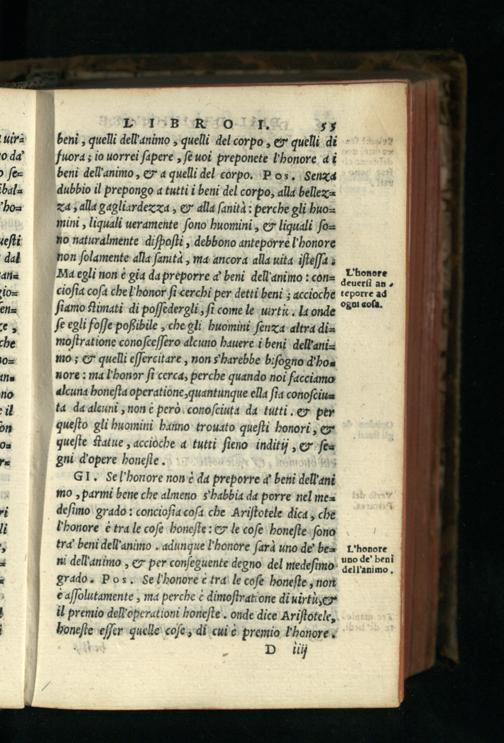 LIBRO I. 55
beni, quelli dell'animo, quelli del corpo, & quelli di
fuora; io vorrei sapere, se uoi preponete l'honore a i
beni dell'animo, & a quelli del corpo. Pos. Senza
dubbio il prepongo a tutti i beni del corpo, alla bellez=
za, alla gagliardezza, & alla sanità: perche gli huo=
mini, liquali ueramente sono huomini, & liquali so=
no naturalmente disposti, debbono anteporre l'honore
non solamente alla sanità, ma ancora alla uita istessa.
Ma egli non è gia da preporre a' beni dell'animo: con=
ciosia cosa che l'honor si cerchi per detti beni; accioche
siamo stimati di possedergli, si come le uirtù. la onde
se egli fosse possibile, che gli huomini senza altra di=
mostratione conoscessero alcuno hauere i beni dell'ani=
mo; & quelli essercitare, non s'harebbe bisogno d'ho=
nore: ma l'honor si cerca, perche quando noi facciamo
alcuna honesta operatione, quantunque ella sia conosciu=
ta da alcuni, non è però conosciuta da tutti. & per
questo gli huomini hanno trouato questi honori, &
queste statue, accioche a tutti sieno inditij, & se=
gni d'opere honeste.
GI. Se l'honore non è da preporre a' beni dell'ani
mo, parmi bene che almeno s'habbia da porre nel me=
desimo grado: conciosia cosa che Aristotele dica, che
l'honore è tra le cose honeste: & le cose honeste sono
tra' beni dell'animo. adunque l'honore sarà uno de' be=
ni dell'animo, & per conseguente degno del medesimo
grado. Pos. Se l'honore è tra le cose honeste, non
è assolutamente, ma perche è dimostratione di uirtù, &
il premio dell'operationi honeste. onde dice Aristotele,
honeste esser quelle cose, di cui è premio l'honore.
D iiij
L'honore
deuersi an=
teporre ad
ogni cosa.
L'honore
uno de' beni
dell'animo.